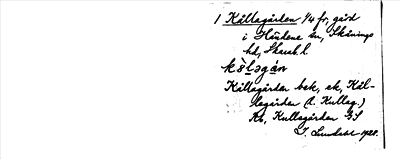 1 Källagården 1/4 fr, gård
i Händene sn, Skånings
hd, Skarab. l
kǒ̀ləgán
Källagården bek, ek, Käl-
lagården (A. Kullag.)
Rt, Kullagården GS
I. Lundahl 1928.